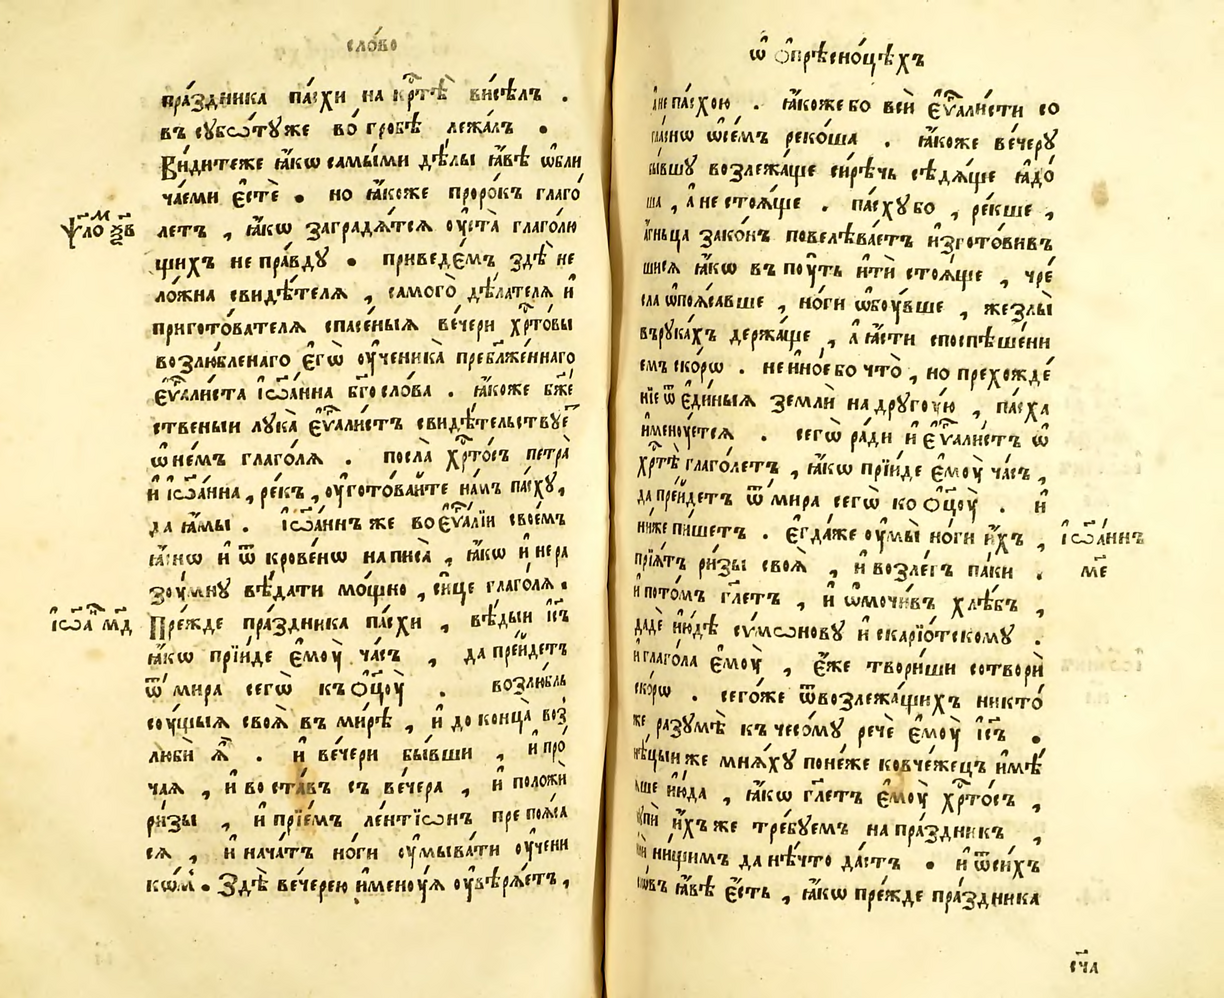 сло́во
пра́здника па́схи на кр҇тѣ̀ ви́сѣлъ .
въ сꙋбѡ́тꙋ же во́ гробѣ̀ лежа́лъ .
Ви́дите же ꙗ҆́кѡ самы́ми дѣ́лы ꙗ҆́вѣ ѡ҆бли
ча́еми є҆стѐ . но ꙗ҆́коже проро́къ глаго́
ѱало́м ѯ҃в
летъ , ꙗ҆́кѡ заградѧ́тсѧ ᲂу҆ста̀ глаго́лю
щихъ непра́вдꙋ . приведе́мъ здѣ̀ не
ло́жна свидѣ́телѧ , самого̀ дѣ́лателѧ и҆
приготова́телѧ спасе́ныѧ ве́чери хр҇то́вы
возлю́бленаго є҆гѡ̀ ᲂу҆ченика̀ пребл҃же́ннаго
є҆ѵ҃али́ста і҆ѡа́нна бг҃осло́ва . ꙗ҆́коже бж҃е́
ственыи лꙋка̀ є҆ѵ҃али́стъ свидѣ́тельствꙋе҃
ѡ҆ не́мъ глаго́лѧ . посла̀ хр҇то́съ петра̀
и҆ і҆ѡа́нна , ре́къ , ᲂу҆гото́вайте на́мъ па́схꙋ ,
да ꙗ҆́мы . і҆ѡа́ннъ же во є҆ѵ҃а́лїи свое́мъ
ꙗ҆́снѡ и҆ ѿкрове́нѡ написа̀ , ꙗ҆́кѡ и҆ нера
зᲂу́мнꙋ вѣ́дати мо́щно , си́це глаго́лѧ .
і҆ѡа́н м҃д
Пре́жде пра́здника па́схи , вѣ́дыи і҆с҃ъ
ꙗ҆́кѡ прїи́де є҆мᲂу̀ ча́съ , да пре́йдетъ
ѿ мира сегѡ̀ къ ѻ҆ц҃ᲂу̀ . возлю́бль
сᲂу́щыѧ своѧ̀ въ ми́рѣ , и҆ до конца̀ воз̾
любѝ ѧ҆̀ . и҆ ве́чери бы́вши , и҆ про́
чаѧ , и҆ воста́въ съ ве́чера , и҆ положѝ
ри́зы , и҆ прїе́мъ ле́нтїѡнъ препоѧ́са
сѧ , и҆ нача́тъ но́ги ᲂу҆мыва́ти ᲂу҆чени
кѡ́мъ . Здѣ̀ ве́черею и҆менᲂу́ѧ ᲂу҆вѣрѧ́етъ ,
ѡ҆ ѻ҆прѣсно́цѣхъ
а҆ не па́схою . ꙗ҆́коже бо всѝ є҆ѵ҃али́сти со
гла́снѡ ѡ҆ се́мъ реко́ша . ꙗ҆́коже ве́черꙋ
бы́вшꙋ возлежа́ще си́рѣчь сѣдѧ́ще ꙗ҆до́
ша , а҆ не стоѧ́ще . па́схꙋ бо , ре́кше ,
а҆́гньца зако́нъ повелѣва́етъ и҆згото́вив
шисѧ ꙗ҆́кѡ въ пᲂу́ть и҆тѝ стоѧ́ще , чре́
сла ѡ҆поѧ́савше , но́ги ѡ҆бᲂу́вше , жезлы̀
в рꙋка́хъ держа́ще , а҆ ꙗ҆́сти споспѣше́ни
емъ ско́рѡ . не и҆но́е бо что̀ , но прехожде́
нїе ѿ є҆ди́ныѧ землѝ на дрꙋгᲂу́ю , па́сха
и҆менᲂу́етсѧ . сегѡ̀ ра́ди и҆ є҆ѵ҃али́стъ ѡ҆
хр҇тѣ̀ глаго́летъ , ꙗ҆́кѡ прїи́де є҆мᲂу̀ ча́съ ,
да пре́йдетъ ѿ мира сегѡ̀ ко ѻ҆ц҃ᲂу̀ . и҆
ни́же пи́шетъ . є҆гда́же ᲂу҆мы̀ но́ги и҆́хъ ,
і҆ѡа́ннъ
м҃е
прїѧ́тъ ри́зы своѧ̀ , и҆ возле́гъ па́ки .
и҆ пото́мъ гл҃етъ , и҆ ѡ҆мочи́въ хлѣ́бъ ,
дадѐ и҆ю́дѣ сѵ́мѡновꙋ и҆скарїо́тскомꙋ .
и҆ глаго́ла є҆мᲂу̀ , є҆́же твори́ши сотворѝ
ско́рѡ . сего́же ѿ возлежа́щихъ никто́
же разꙋмѣ̀ къ чесо́мꙋ речѐ є҆мᲂу̀ і҆с҃ъ .
нѣ́цыи же мнѧ́хꙋ поне́же ковче́жецъ и҆мѣ́
ѧше и҆ю́да , ꙗ҆́кѡ гл҃етъ є҆мᲂу̀ хр҇то́съ ,
кꙋпѝ и҆́хъже тре́бꙋемъ на пра́здникъ ,
и҆лѝ ни́щимъ да нѣ́что да́стъ . и҆ ѿ си́хъ
ꙗ҆́вѣ є҆́сть , ꙗ҆́кѡ пре́жде пра́здника
сч҃а